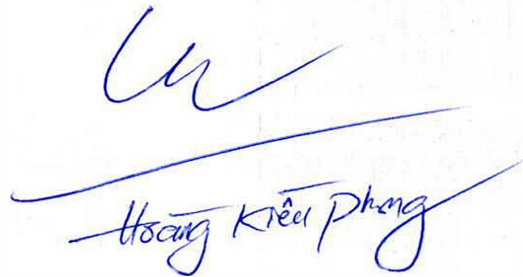 Hoàng Kiều Phong